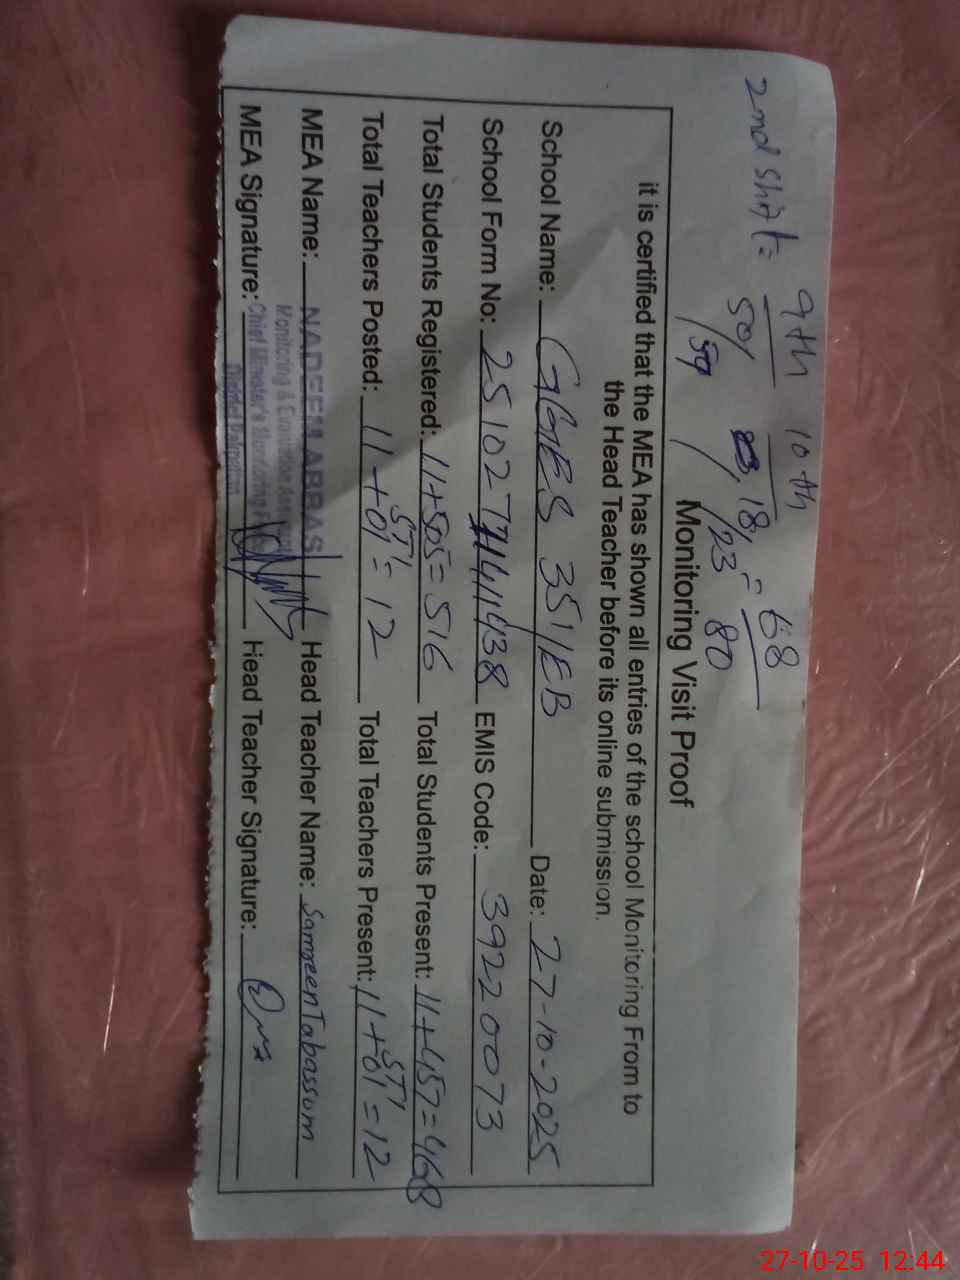 9th 10th
2nd shift = 50, 18, = 68
/59 /23 80
Monitoring Visit Proof
it is certified that the MEA has shown all entries of the school Monitoring From to
the Head Teacher before its online submission.
School Name: GGES 351/EB Date: 27-10-2025
School Form No: EMIS Code: 39220073
Total Students Registered: 11+505=516 Total Students Present: 11+457=468
STI STI
Total Teachers Posted: 11+01=12 Total Teachers Present: 11+01=12
MEA Name: NADEEM ABBAS Head Teacher Name: Sameen Tabassom
Monitoring & Evaluation Assistant
MEA Signature: Chief Minister's Monitoring Head Teacher Signature:
District Pakpattan
27-10-25 12:44